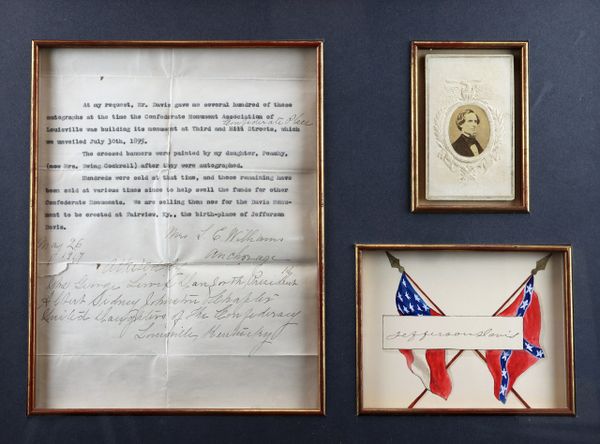 At my request, Mr. Davis gave me several hundred of these
autographs at the time the Confederate Monument Association of
Confederate Place
Louisville was building its monument at Third and Hill Streets, which
we unveiled July 30th, 1895.
The crossed banners were painted by my daughter,
(now Mrs. Ewing Cockrell) after they were autographed.
Hundreds were sold at that time, and those remaining have
been sold at various times since to help swell the funds for other
Confederate Monuments. We are selling them now for the Davis Monu-
ment to be erected at Fairview, Ky., the birth-place of Jefferson
Davis.
Mrs L C Williams
May 26
Anchorage
Ky
Mrs George
President
Albert Sidney Johnston Chapter
United Daughters of the Confederacy
Louisville Kentucky
Jefferson Davis